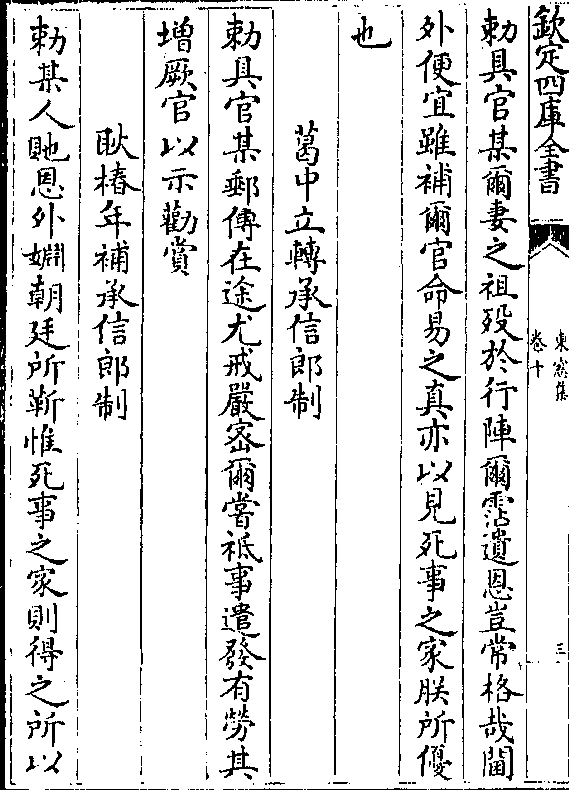 欽定四庫全書
東窗集
卷十
三
勅具官某爾妻之祖歿於行陣爾霑遺恩豈常格哉閫
外便宜雖補爾官命易之真亦以見死事之家朕所優
也
葛中立轉承信郎制
勅具官某郵傳在途尤戒嚴宻爾嘗祗事遣發有勞其
增厥官以示勸賞
耿椿年補承信郎制
勅某人貤恩外婣朝廷所靳惟死事之家則得之所以